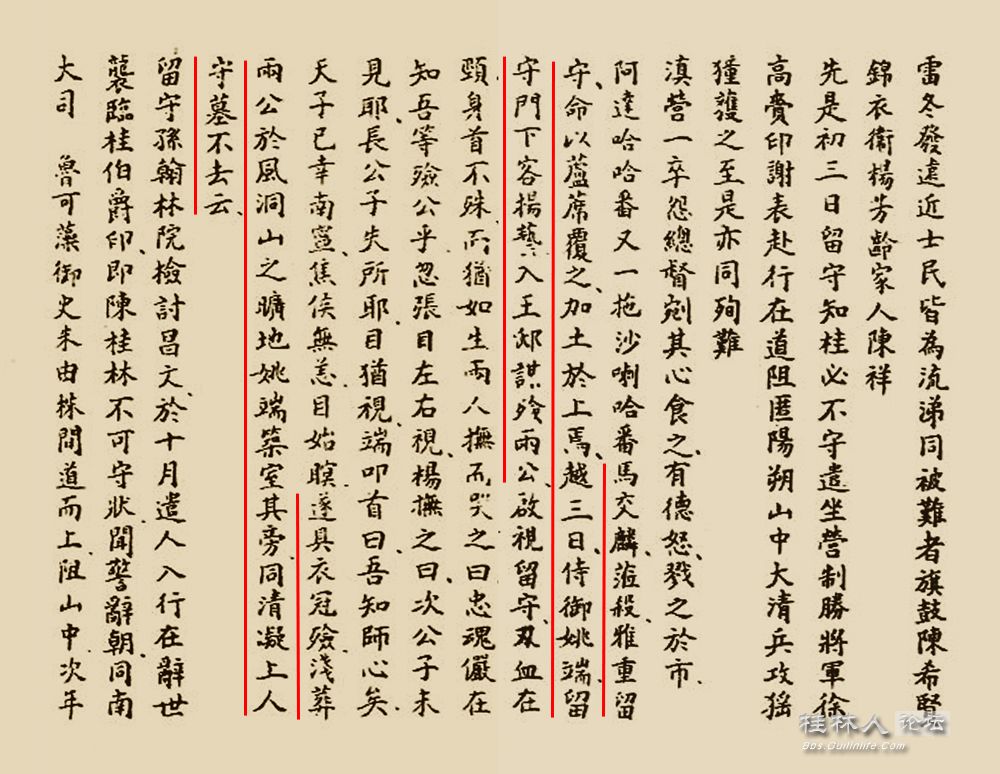 雷冬發遠近士民皆為流涕同被難者旗鼓陳希賢
錦衣衞楊芳齡家人陳祥
先是初三日留守知桂必不守遣坐營制勝將軍徐
高賫印謝表赴行在道阻匿陽朔山中大清兵攻猺
獞護之至是亦同殉難
滇營一卒怨總督剜其心食之有德怒戮之於市
阿達哈哈番又一拖沙喇哈番馬交麟蒞殺雅重留
守命以蘆蓆覆之加土於上焉越三日侍御姚端留
守門下客楊藝入王邸謀殮兩公啟視留守刄血在
頸身首不殊而猶如生兩人撫而哭之曰忠魂儼在
知吾等殮公乎忽張目左右視楊撫之曰次公子未
見耶長公子失所耶目猶視端叩首曰吾知師心矣
天子已幸南寧焦侯無恙目始瞑遂具衣冠殮淺葬
兩公於風洞山之曠地姚端築室其旁同清凝上人
守墓不去云
留守孫翰林院檢討昌文於十月遣人入行在辭世
襲臨桂伯爵印即陳桂林不可守狀聞警辭朝同南
大司 魯可藻御史朱由㭎間道而上阻山中次年
桂林人论坛
Bbs.Guilinlife.com